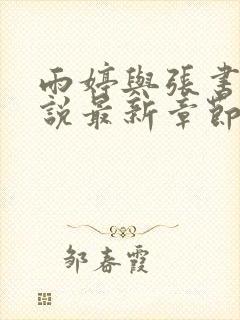 雨婷與張書
說最新章節
邹春霞